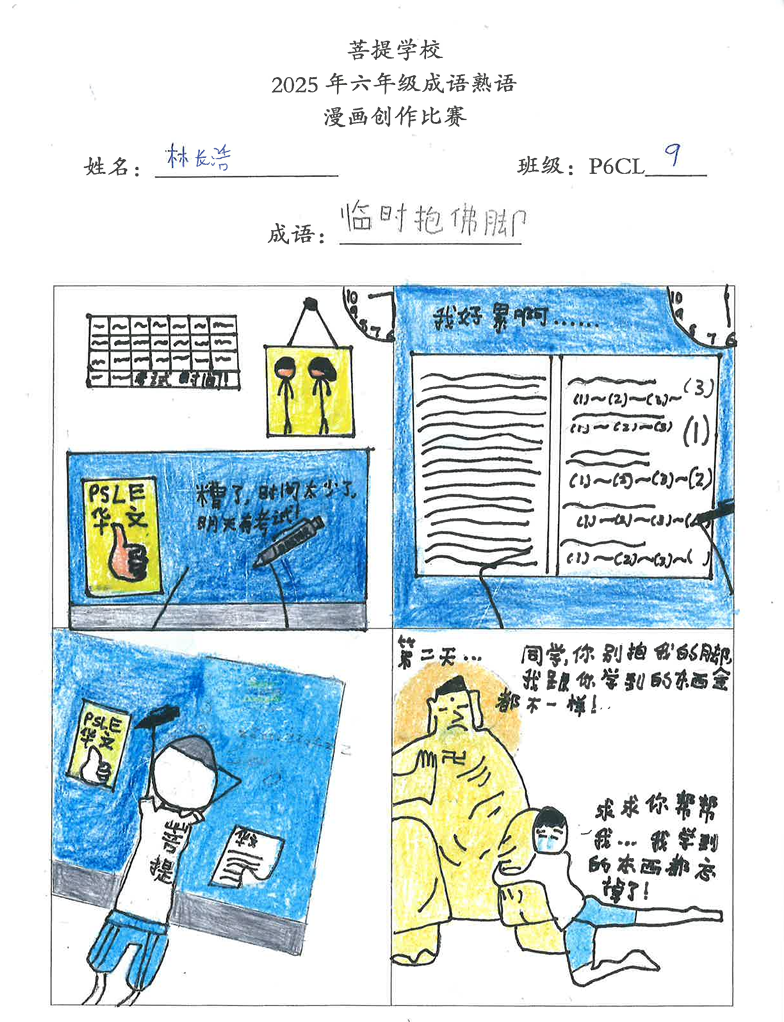 菩提学校
2025 年六年级成语熟语
漫画创作比赛
姓名：林长浩
班级：P6CL 9
成语：临时抱佛脚
10
9
8
7
6
考试时间!
PSLE
华文
糟了，时间太少了，
明天有考试!
10
9
8
7
6
我好累啊......
(3)
(1)~(2)~(3)~
(1)~(2)~(3)
(1)
(1)~(2)~(3)~(2)
(1)~(2)~(3)~(
(1)~(2)~(3)~( )
PSLE
华文
菩提
第二天...
同学，你别抱我的脚，
我跟你学到的东西全
都不一样!
卍
求求你帮帮
我...我学到
的东西都忘
掉了!